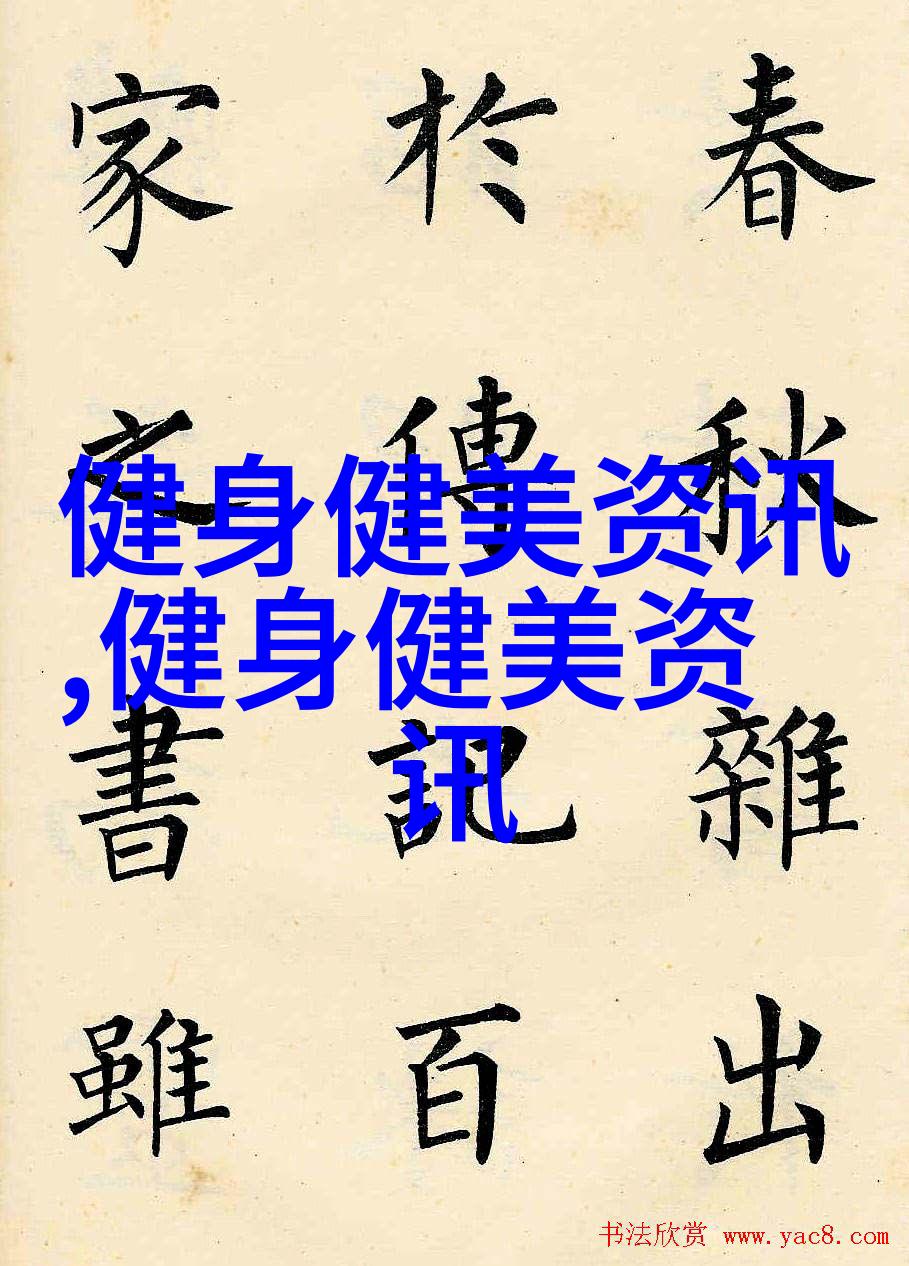 春秋雜出
於傳記百
家之書雖
健身健美资讯
,健身健美资
讯
书法欣赏 www.yac8.com